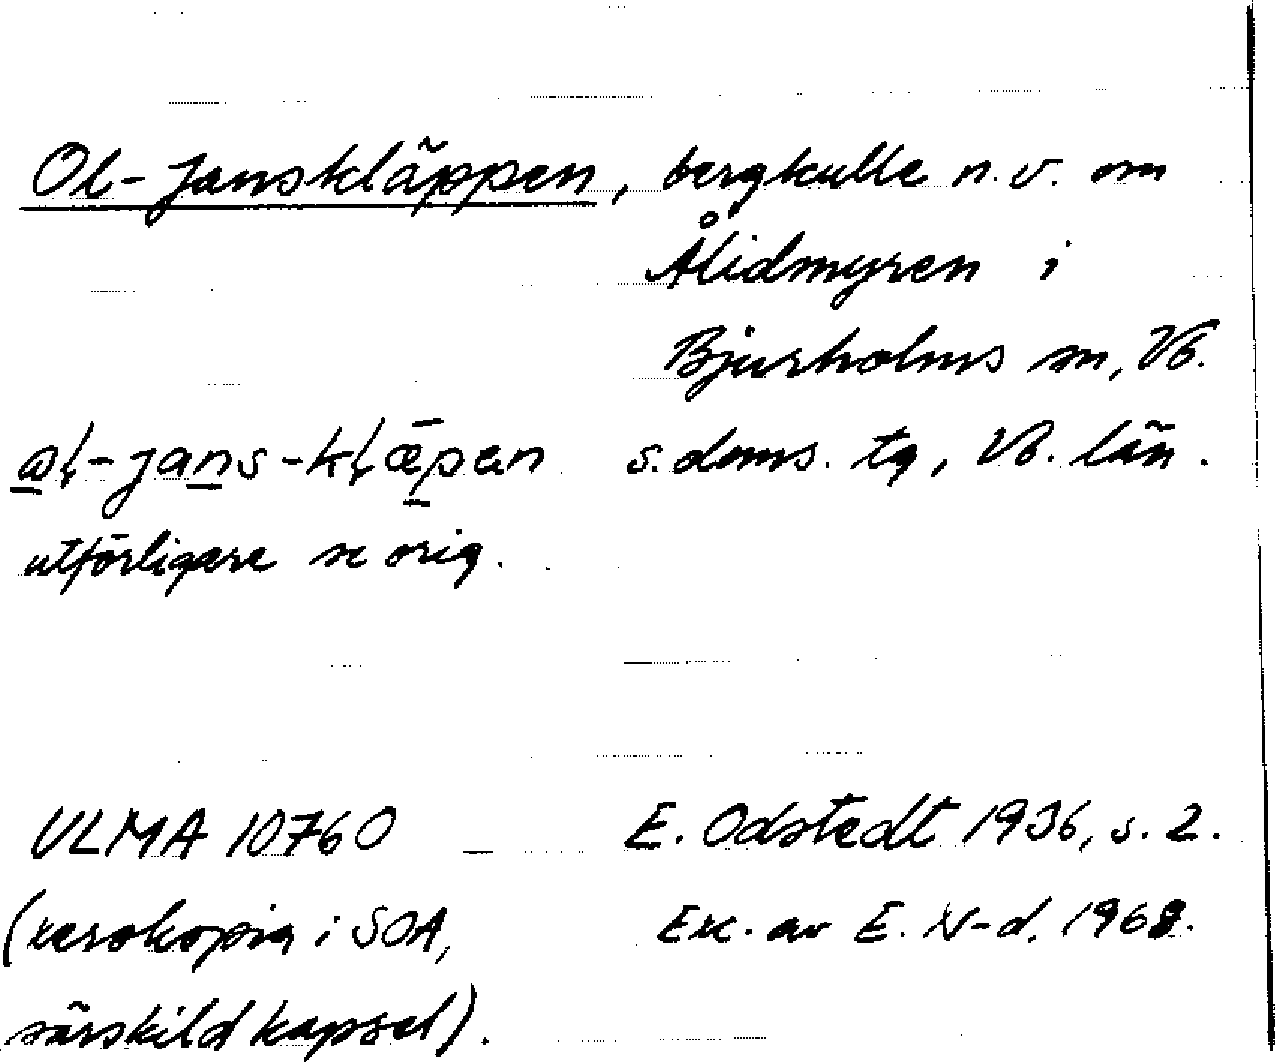 Ol-Janskläppen, bergkulle n.v. om
Ålidmyren i
Bjurholms sn, Vb.
s. doms. tg, Vb. län.
utförligare se orig.
ULMA 10760 E. Odstedt 1936, s. 2.
(xerokopia i SOA, Exc. av E. N-d. 1968.
särskild kapsel).